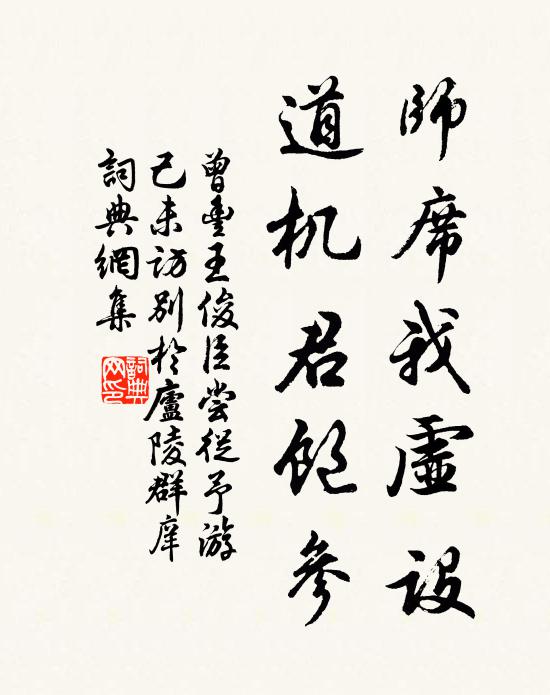 師席我虛設
道机君飽參
曾豐王俊臣嘗從予游
己未訪別於廬陵群庠
詞典網集
詞典网印